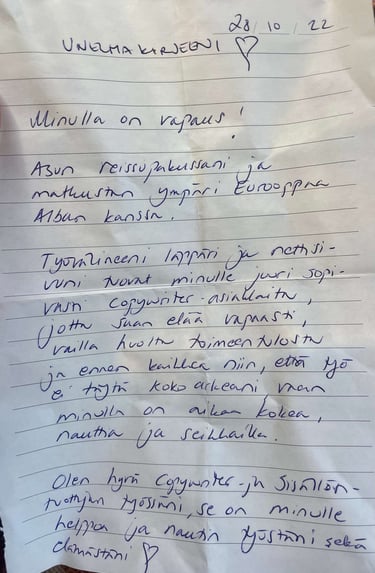 28/10/22
UNELMAKIRJEENI ♡
Minulla on vapaus!
Asun reissupakussani ja
matkustan ympäri Eurooppaa
Alban kanssa.
Työvälineeni läppäri ja nettisi-
vuni tuovat minulle juuri sopi-
vasti copywriter-asiakkaita,
jotta saan elää vapaasti,
vailla huolta toimeentulosta
ja ennen kaikkea niin, että työ
ei täytä koko arkeani vaan
minulla on aikaa kokea,
nauttia ja seikkailla.
Olen hyvä copywriter- ja sisällön-
tuottajan työssäni, se on minulle
helppoa ja nautin työstäni sekä
elämästäni ♡